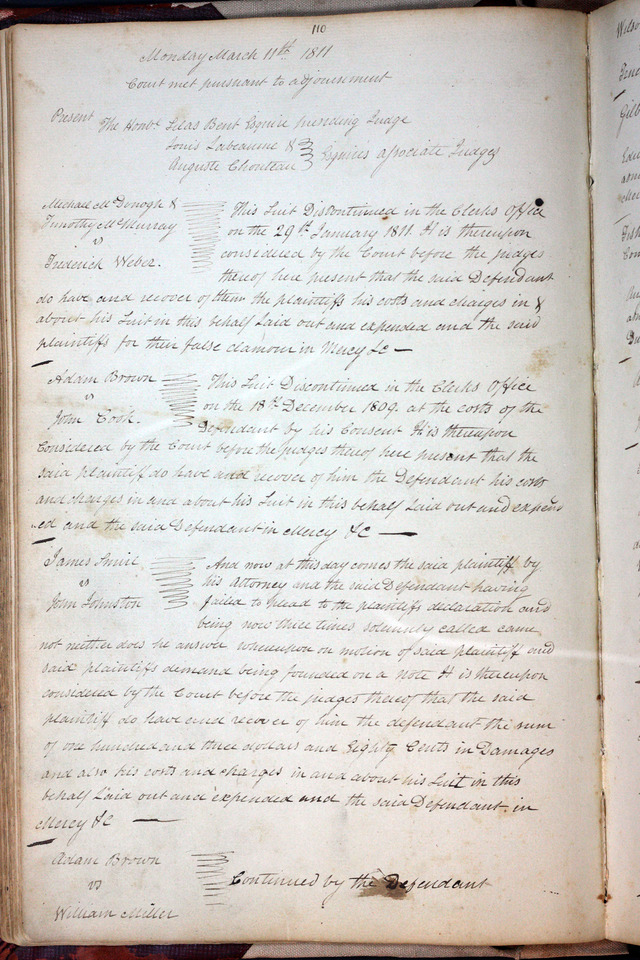 110
Monday March 11th 1811
Court met pursuant to adjournment
Present The Honbl Silas Bent Esquire presiding Judge
Louis Labeaume &
Auguste Chouteau
Esquires associate Judges
Michael McDonogh &
Timothy McMurray
vs
Frederick Weber.
This Suit Discontinued in the Clerks Office
on the 29th January 1811. It is thereupon
considered by the Court before the judges
thereof here present that the said Defendant
do have and recover of them the plaintiffs his costs and charges in &
about his Suit in this behalf Laid out and expended and the said
plaintiffs for their false clamour in Mercy &c —
Adam Brown
vs
John Cook.
This Suit Discontinued in the Clerks Office
on the 18th December 1809. at the costs of the
Defendant by his Consent It is thereupon
Considered by the Court before the judges thereof here present that the
said plaintiff do have and recover of him the Defendant his costs
and charges in and about his Suit in this behalf Laid out and expend
ed and the said Defendant in Mercy &c —
James
vs
John Johnston
And now at this day comes the said plaintiff by
his Attorney and the said Defendant having
failed to plead to the plaintiffs declaration and
being now three times solemnly called came
not neither does he answer whereupon on motion of said plaintiff and
said plaintiffs demand being founded on a note It is thereupon
considered by the Court before the judges thereof that the said
plaintiff do have and recover of him the defendant the sum
of one hundred and three dollars and Eighty Cents in Damages
and also his costs and charges in and about his Suit in this
behalf Laid out and expended and the said Defendant in
Mercy &c —
Adam Brown
vs
William Miller
Continued by the Defendant